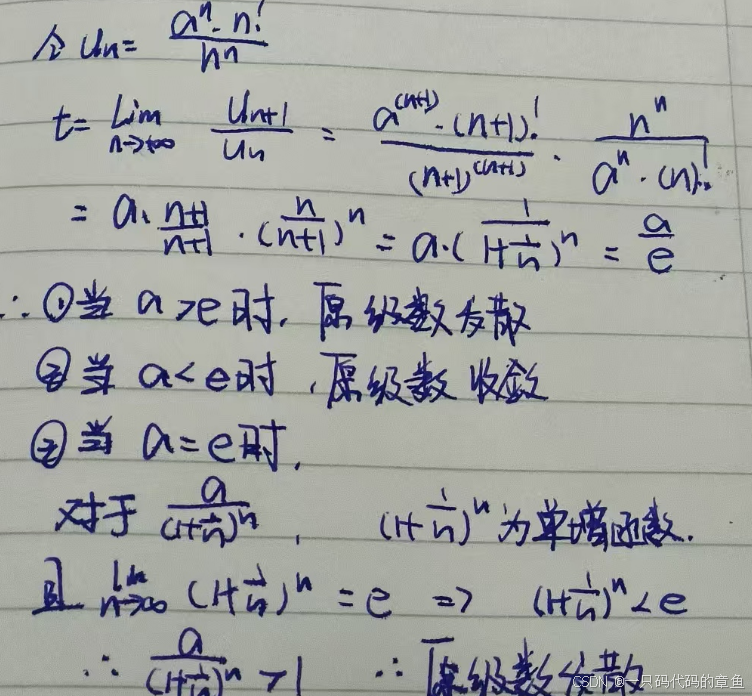 令 Un = a^n · n! / n^n
t = Lim n→+∞ Un+1 / Un = a^(n+1) · (n+1)! / (n+1)^(n+1) · n^n / a^n · (n)!
= a · n+1 / n+1 · (n / n+1)^n = a · (1 / 1+1/n)^n = a / e
∴ ①当 a > e 时, 原级数发散
②当 a < e 时, 原级数收敛
③当 a = e 时,
对于 a / (1+1/n)^n , (1+1/n)^n 为单增函数.
且 lim n→∞ (1+1/n)^n = e => (1+1/n)^n < e
∴ a / (1+1/n)^n > 1 ∴ 原级数发散
CSDN @一只码代码的章鱼